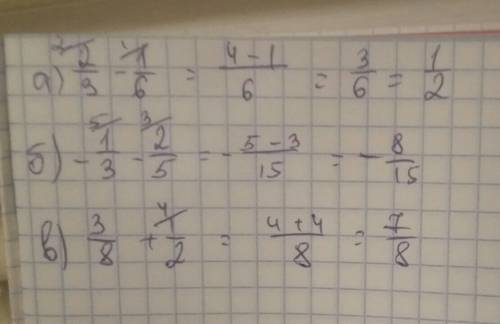 а) 2/3 - 1/6 = 4-1/6 = 3/6 = 1/2
б) - 1/3 - 2/5 = - 5-3/15 = - 8/15
в) 3/8 + 1/2 = 4+4/8 = 7/8